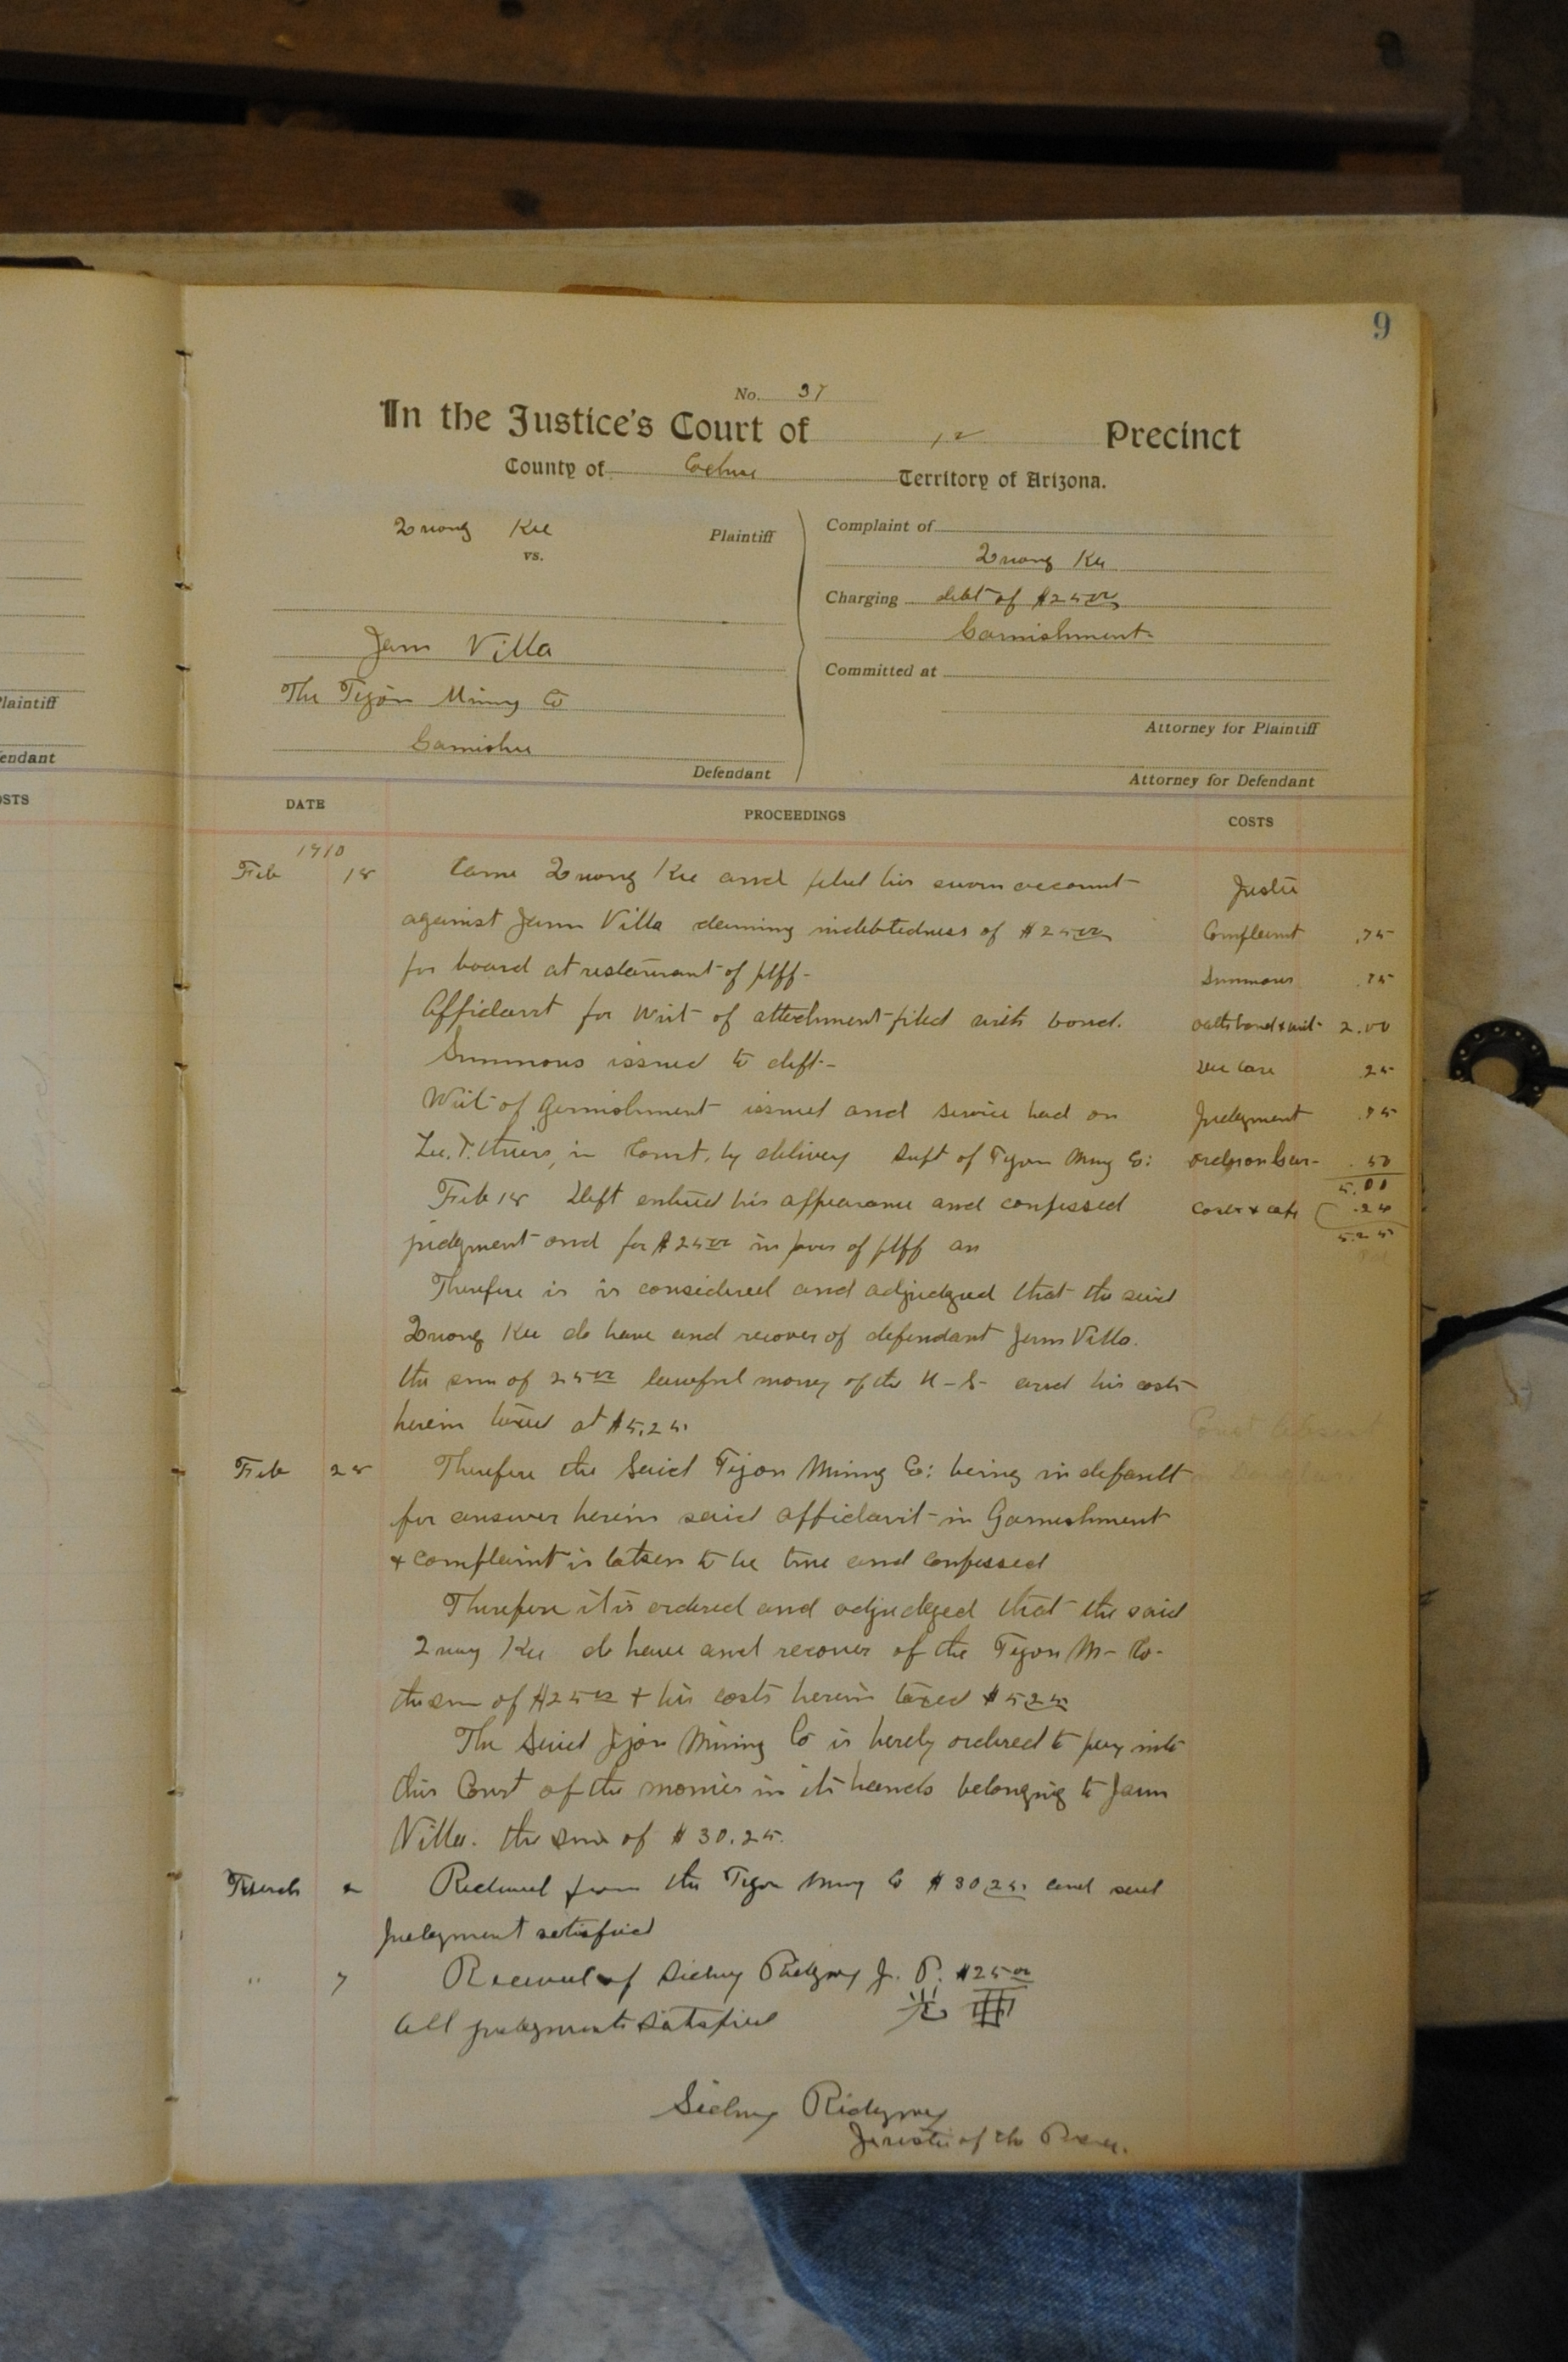 9
No. 37
In the Justice's Court of 12 Precinct
County of Cochise Territory of Arizona.
Quong Kee Plaintiff
vs.
Jann Villa
The Tejon Mining Co
Garnishee
Defendant
Complaint of
Quong Kee
Charging debt of $25 00
Garnishment
Committed at
Attorney for Plaintiff
Attorney for Defendant
Plaintiff
Defendant
COSTS
DATE PROCEEDINGS COSTS
1910
Feb 18 Came Quong Kee and filed his sworn account
against Jann Villa claiming indebtedness of $25 00
for board at restaurant of plff-
Affidavit for Writ of attachment filed with bond.
Summons issued to deft-
Writ of Garnishment issued and service had on
in Court, by delivery Supt of Tejon Mng Co:
Feb 18 Deft entered his appearance and confessed
judgment and for $25 00 in favor of plff an
Therefore is is considered and adjudged that the said
Quong Kee do have and recover of defendant Jann Villa.
the sum of 25 00 lawful money of the U-S- and his costs
herein taxed at $5.25.
Justice
Complaint .75
Summons .75
oaths bond & writ- 2.00
.25
Judgment .75
order on Gar- .50
5.00
.25
5.25
Feb 28 Therefore the Said Tejon Mining Co: being in default
for answer herein said affidavit in Garnishment
& complaint is taken to be true and confessed
Therefore it is ordered and adjudged that the said
Quong Kee do have and recover of the Tejon M- Co-
the sum of $25 00 + his costs herein taxed $5 25
The Said Tejon Mining Co is hereby ordered to pay into
this Court of the monies in its hands belonging to Jann
Villa. the sum of $30.25.
March Received from the Tejon Mng Co $30.25. and said
Judgment satisfied
" 7 Received of Sidney Ridgway J. P. $25 00
All judgments Satisfied
Sidney Ridgway
Justice of the Peace.